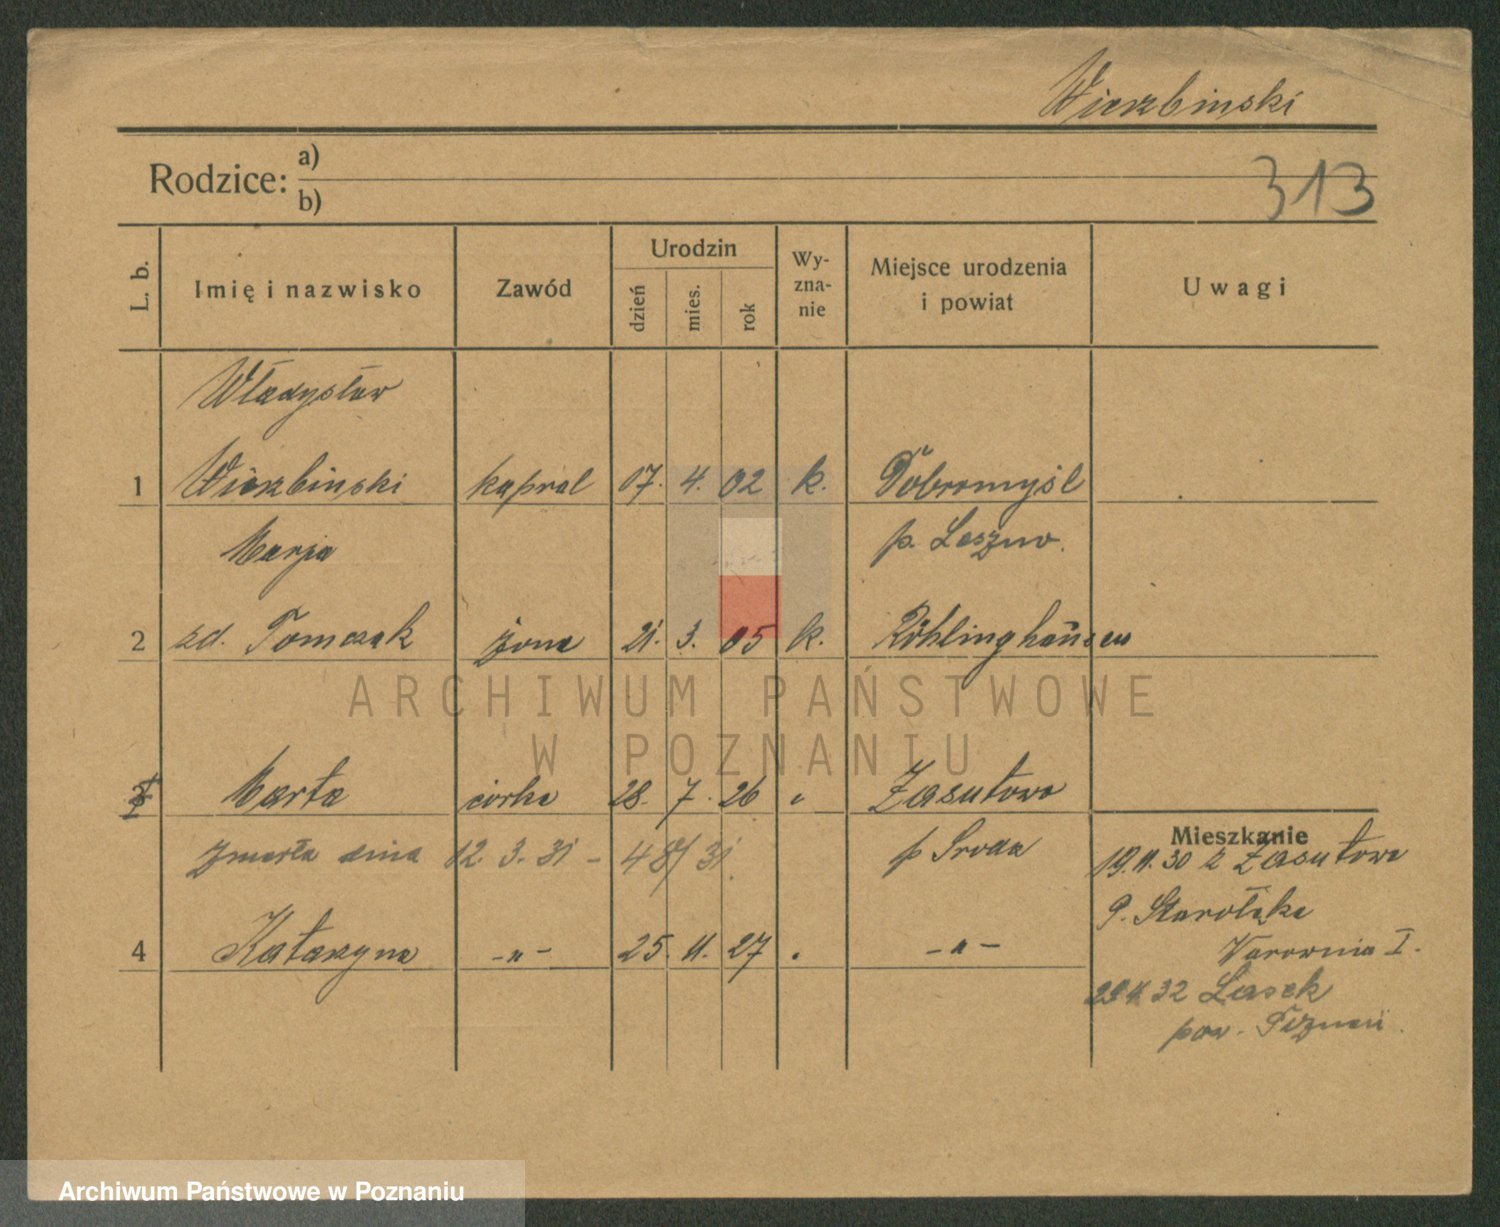 Wierzbinski
Rodzice: a)
b)
313
L. b.
Imię i nazwisko
Zawód
Urodzin
dzień
mies.
rok
Wy-
zna-
nie
Miejsce urodzenia
i powiat
Uwagi
Władysław
1 Wierzbinski kapral 07. 4. 02 k. Dobromyśl
Marja p. Leszno.
2 zd. Tomczak żona 21. 3. 05 k. Röhlinghausen
ARCHIWUM PAŃSTWOWE
W POZNANIU
3 Marta córka 28. 7. 26 " Zasutowo
Zmarła dnia 12. 3. 31 - 48/31. p Sroda
Mieszkanie
19.11.30 z Zasutowo
P. Starołęka
Warownia I.
4 Katarzyna -"- 25. 11. 27 " -"-
32 Lasek
pow. Poznań.
Archiwum Państwowe w Poznaniu